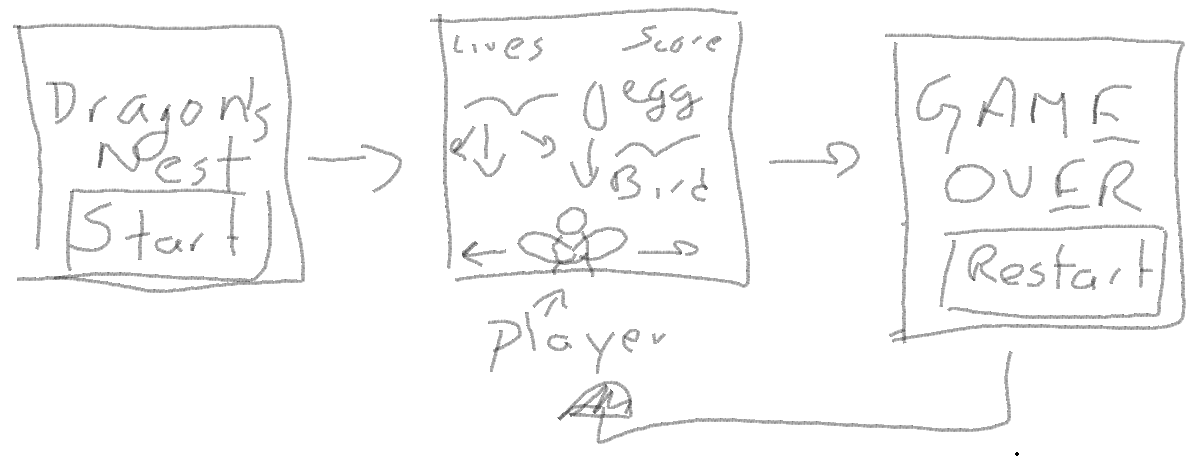 Dragon's
Nest
Start
Lives Score
egg
Bird
Player
GAME
OVER
Restart